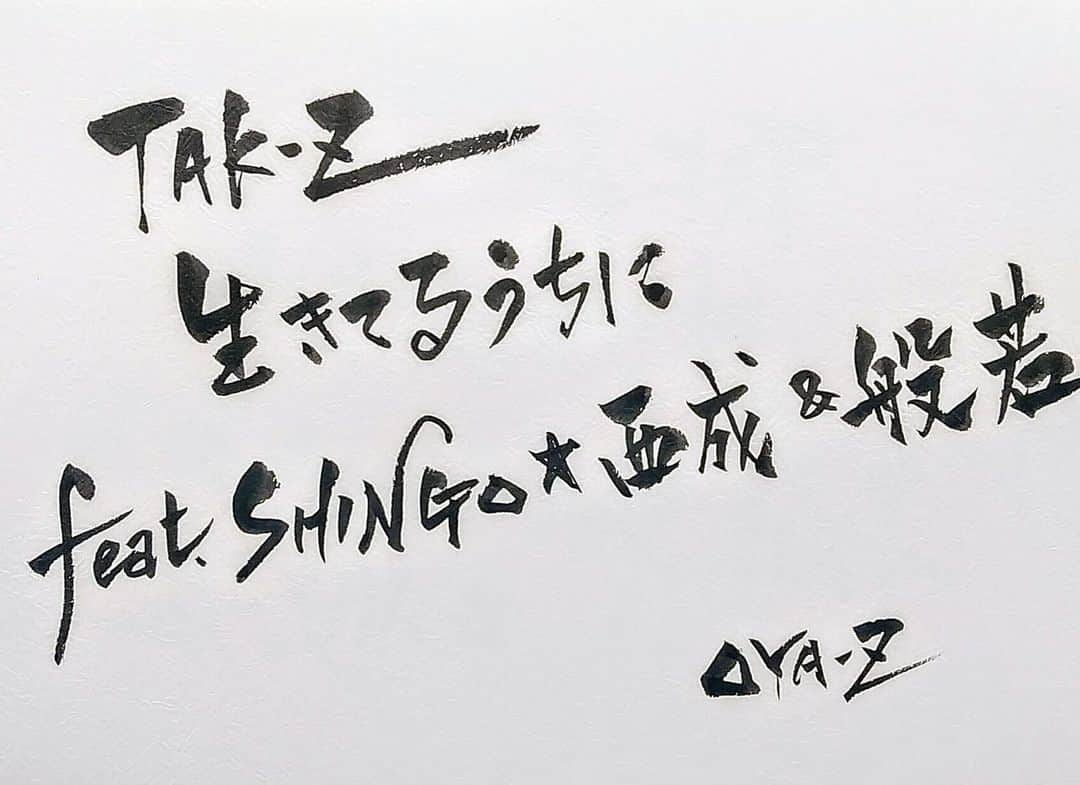 TAK-Z
生きてるうちに
feat. SHINGO★西成 & 般若
OYA-Z